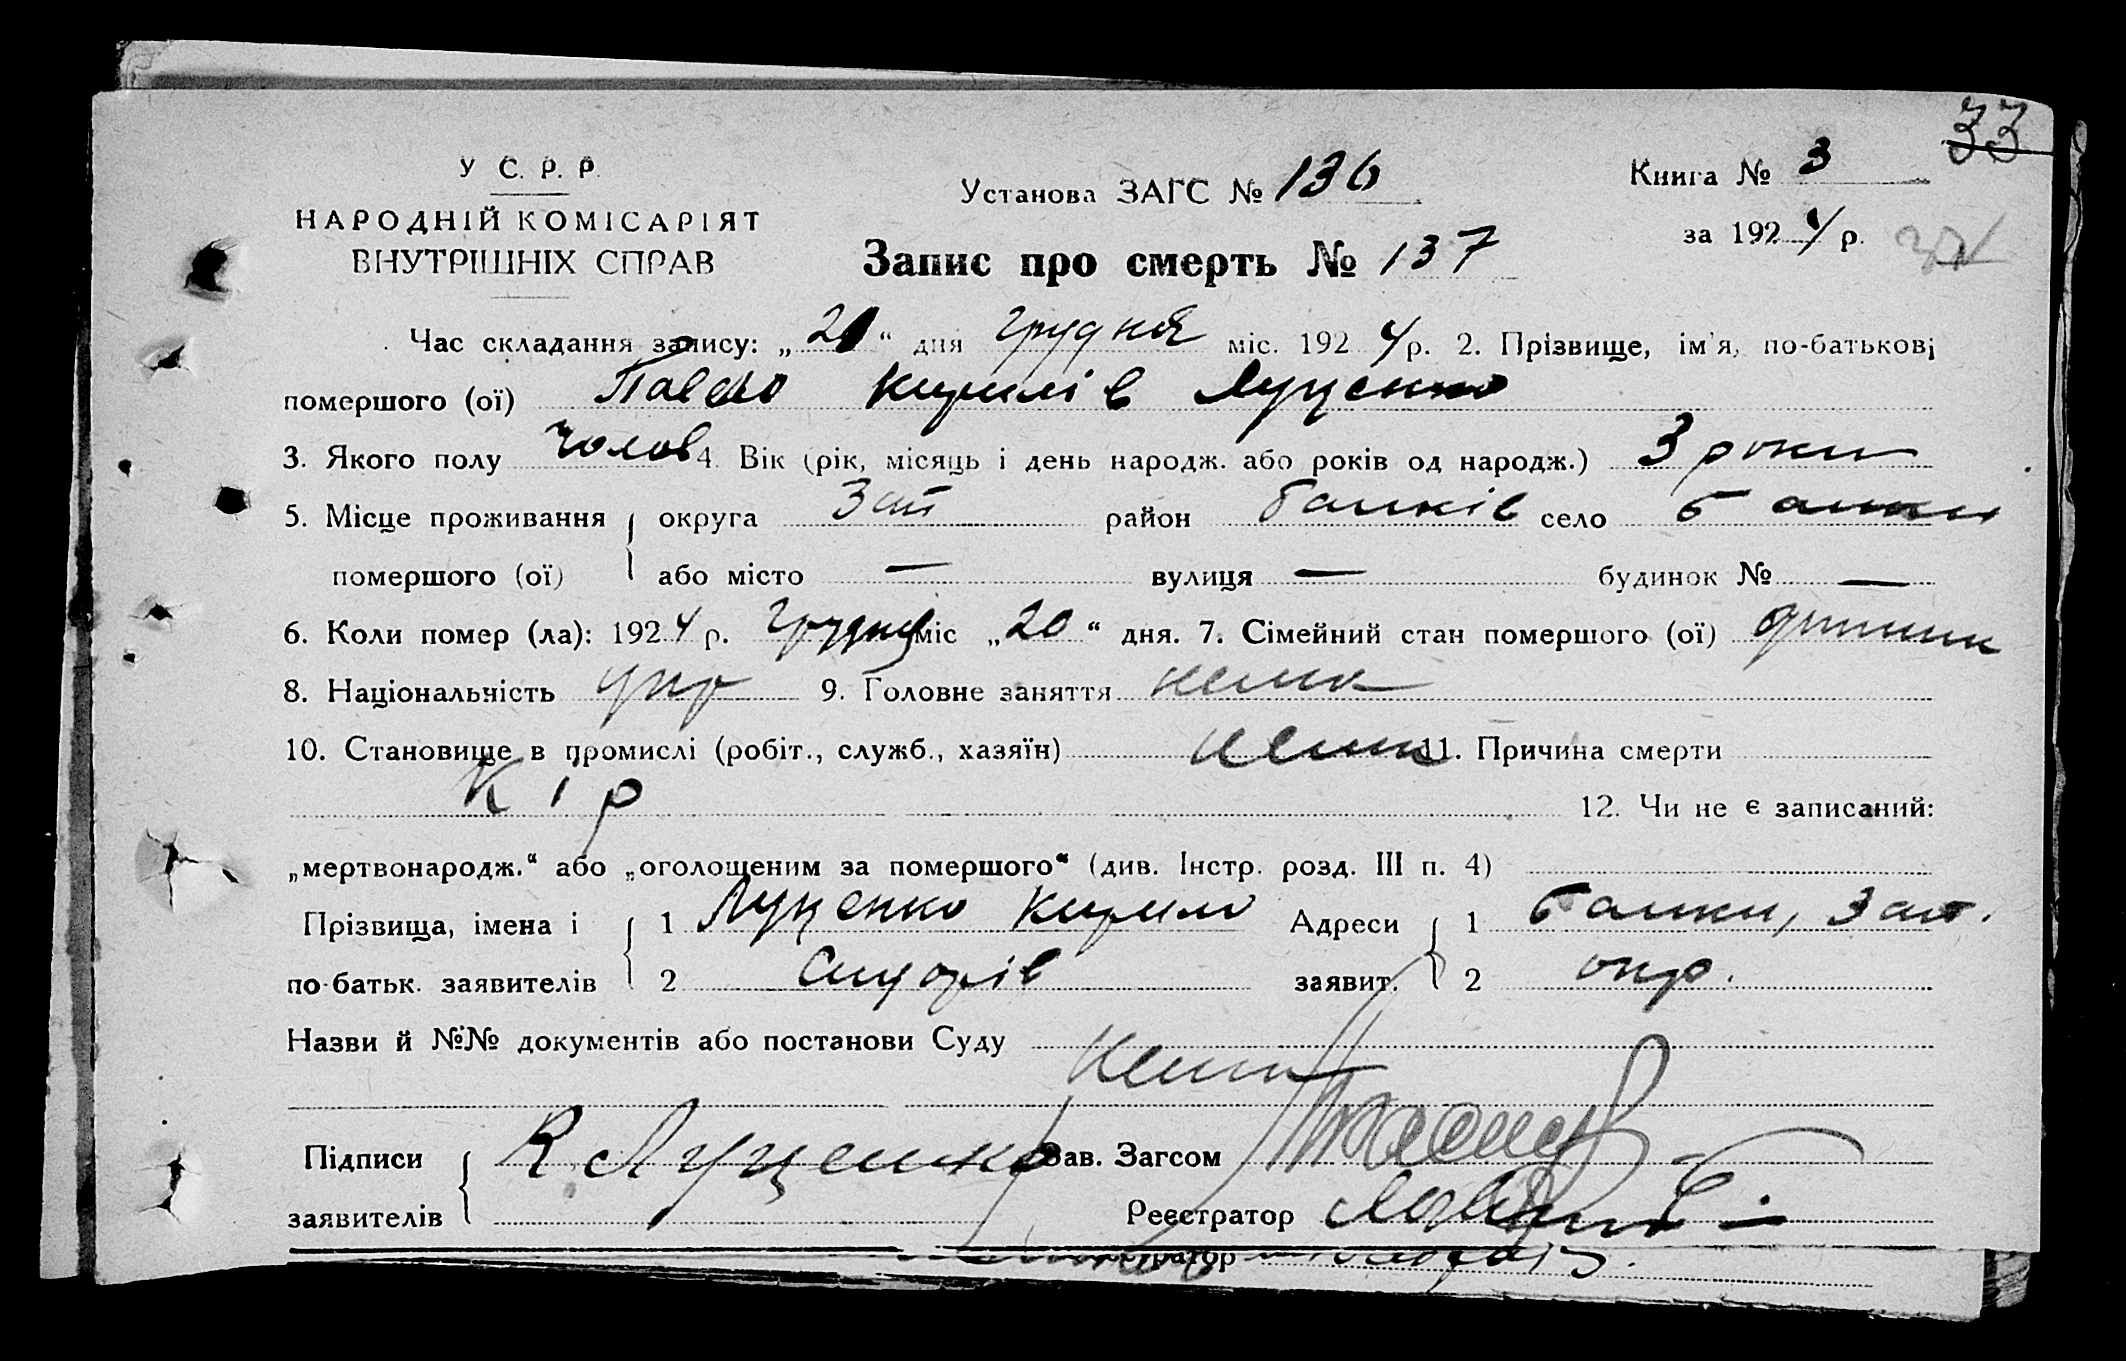 33
У С. Р. Р.
НАРОДНІЙ КОМІСАРІЯТ
ВНУТРІШНІХ СПРАВ
Установа ЗАГС № 136
Книга № 3
за 1924 р.
Запис про смерть № 137
Час складання запису: „21“ дня грудня міс. 1924 р. 2. Прізвище, ім'я, по-батькові
помершого (ої) Павло Кирилів Луценко
3. Якого полу чолов 4. Вік (рік, місяць і день народж. або років од народж.) 3 роки
5. Місце проживання округа Зап район балків село балки
помершого (ої) або місто — вулиця — будинок № —
6. Коли помер (ла): 1924 р. грудня міс „20“ дня. 7. Сімейний стан помершого (ої) дитина
8. Національність укр 9. Головне заняття нема
10. Становище в промислі (робіт., служб., хазяїн) нема 11. Причина смерти
Кір
12. Чи не є записаний:
„мертвонародж.“ або „оголошеним за помершого“ (див. Інстр. розд. III п. 4)
Прізвища, імена і 1 Луценко Кирило Адреси 1 балки, Зап.
по-батьк. заявителів 2 Сидорів заявит. 2 окр.
Назви й №№ документів або постанови Суду
нема
Підписи К Луценко Зав. Загсом
заявителів Реєстратор